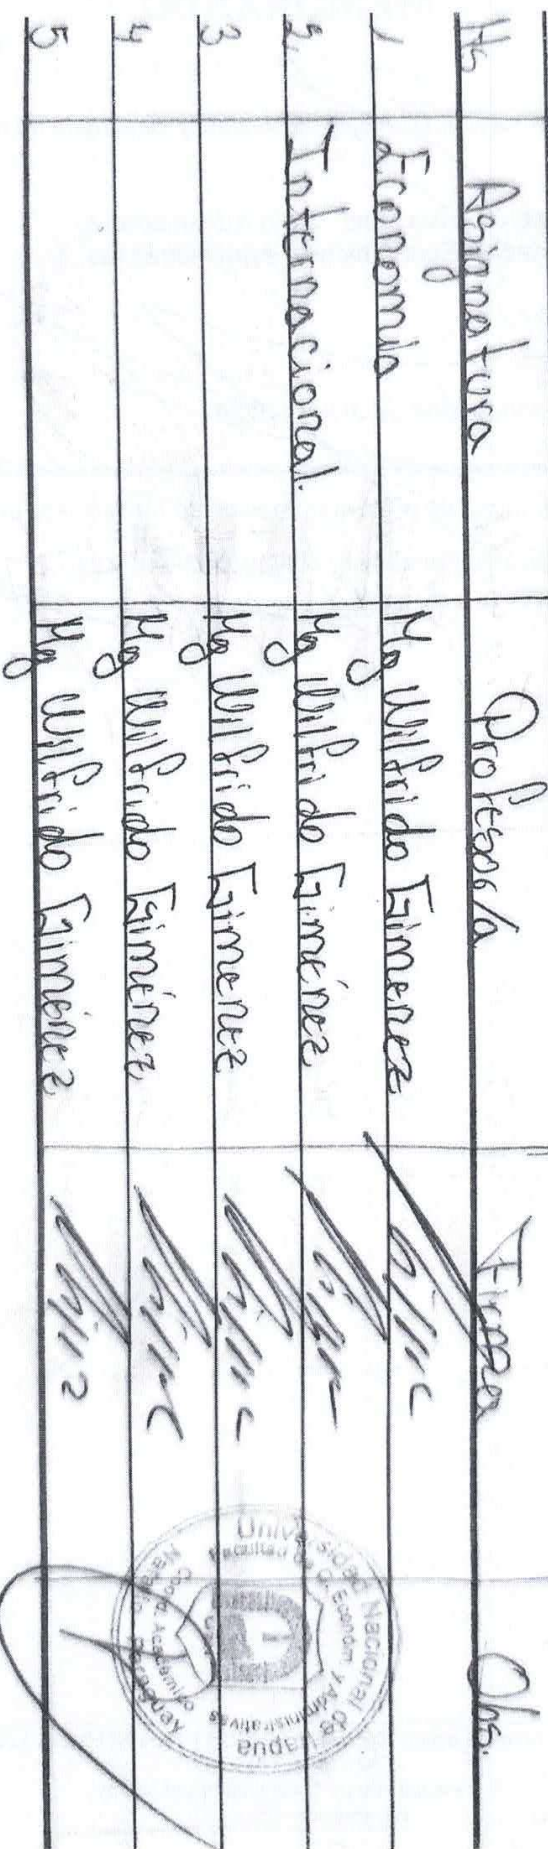 Hs Asignatura Profesor/a Firma Obs.
1 Economia Mg Wilfrido Gimenez
2 Internacional. Mg Wilfrido Giménez
3 Mg Wilfrido Gimenez
4 Mg Wilfrido Giménez
5 Mg Wilfrido Giménez
Universidad Nacional de Itapua
Facultad de C. Económ y Administrativas
Coord. Académico
Natalio Paraguay